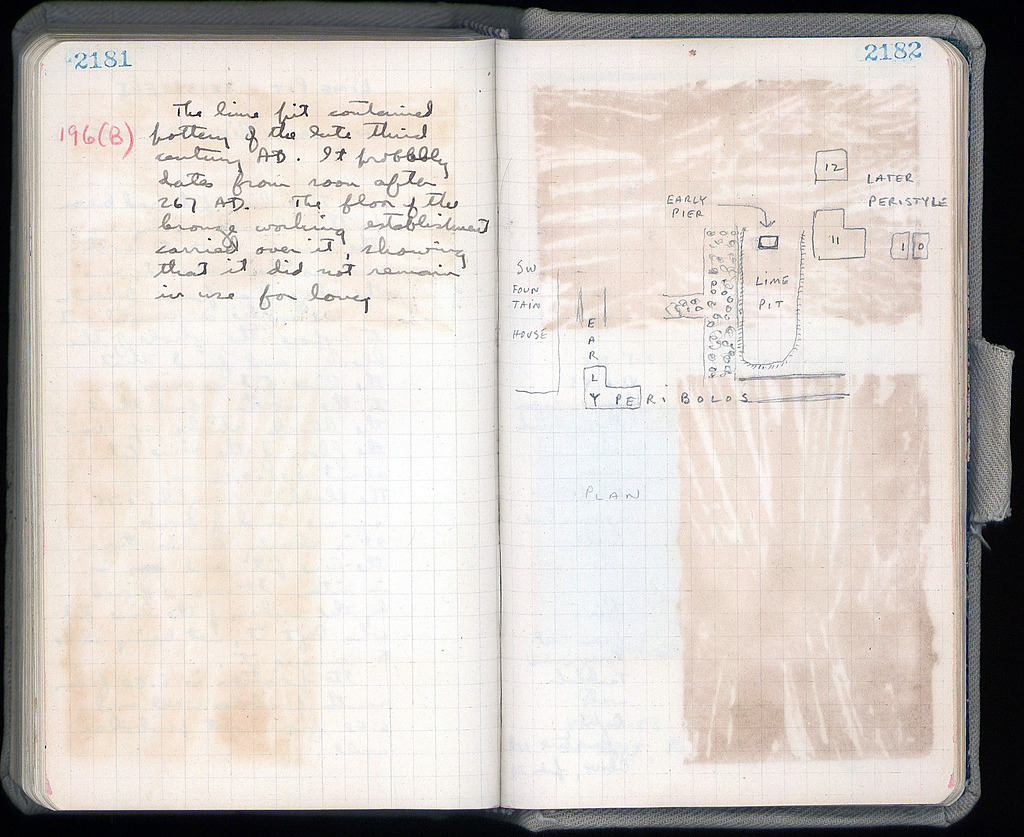 2181
The lime pit contained
196(B) pottery of the late third
century AD. It probbbly
dates from soon after
267 AD. The floor of the
bronze working establishment
carried over it, showing
that it did not remain
in use for long
2182
12
LATER
PERISTYLE
EARLY
PIER
11
10
LIME
PIT
SW
FOUN
TAIN
HOUSE
EARLY PERIBOLOS
PLAN